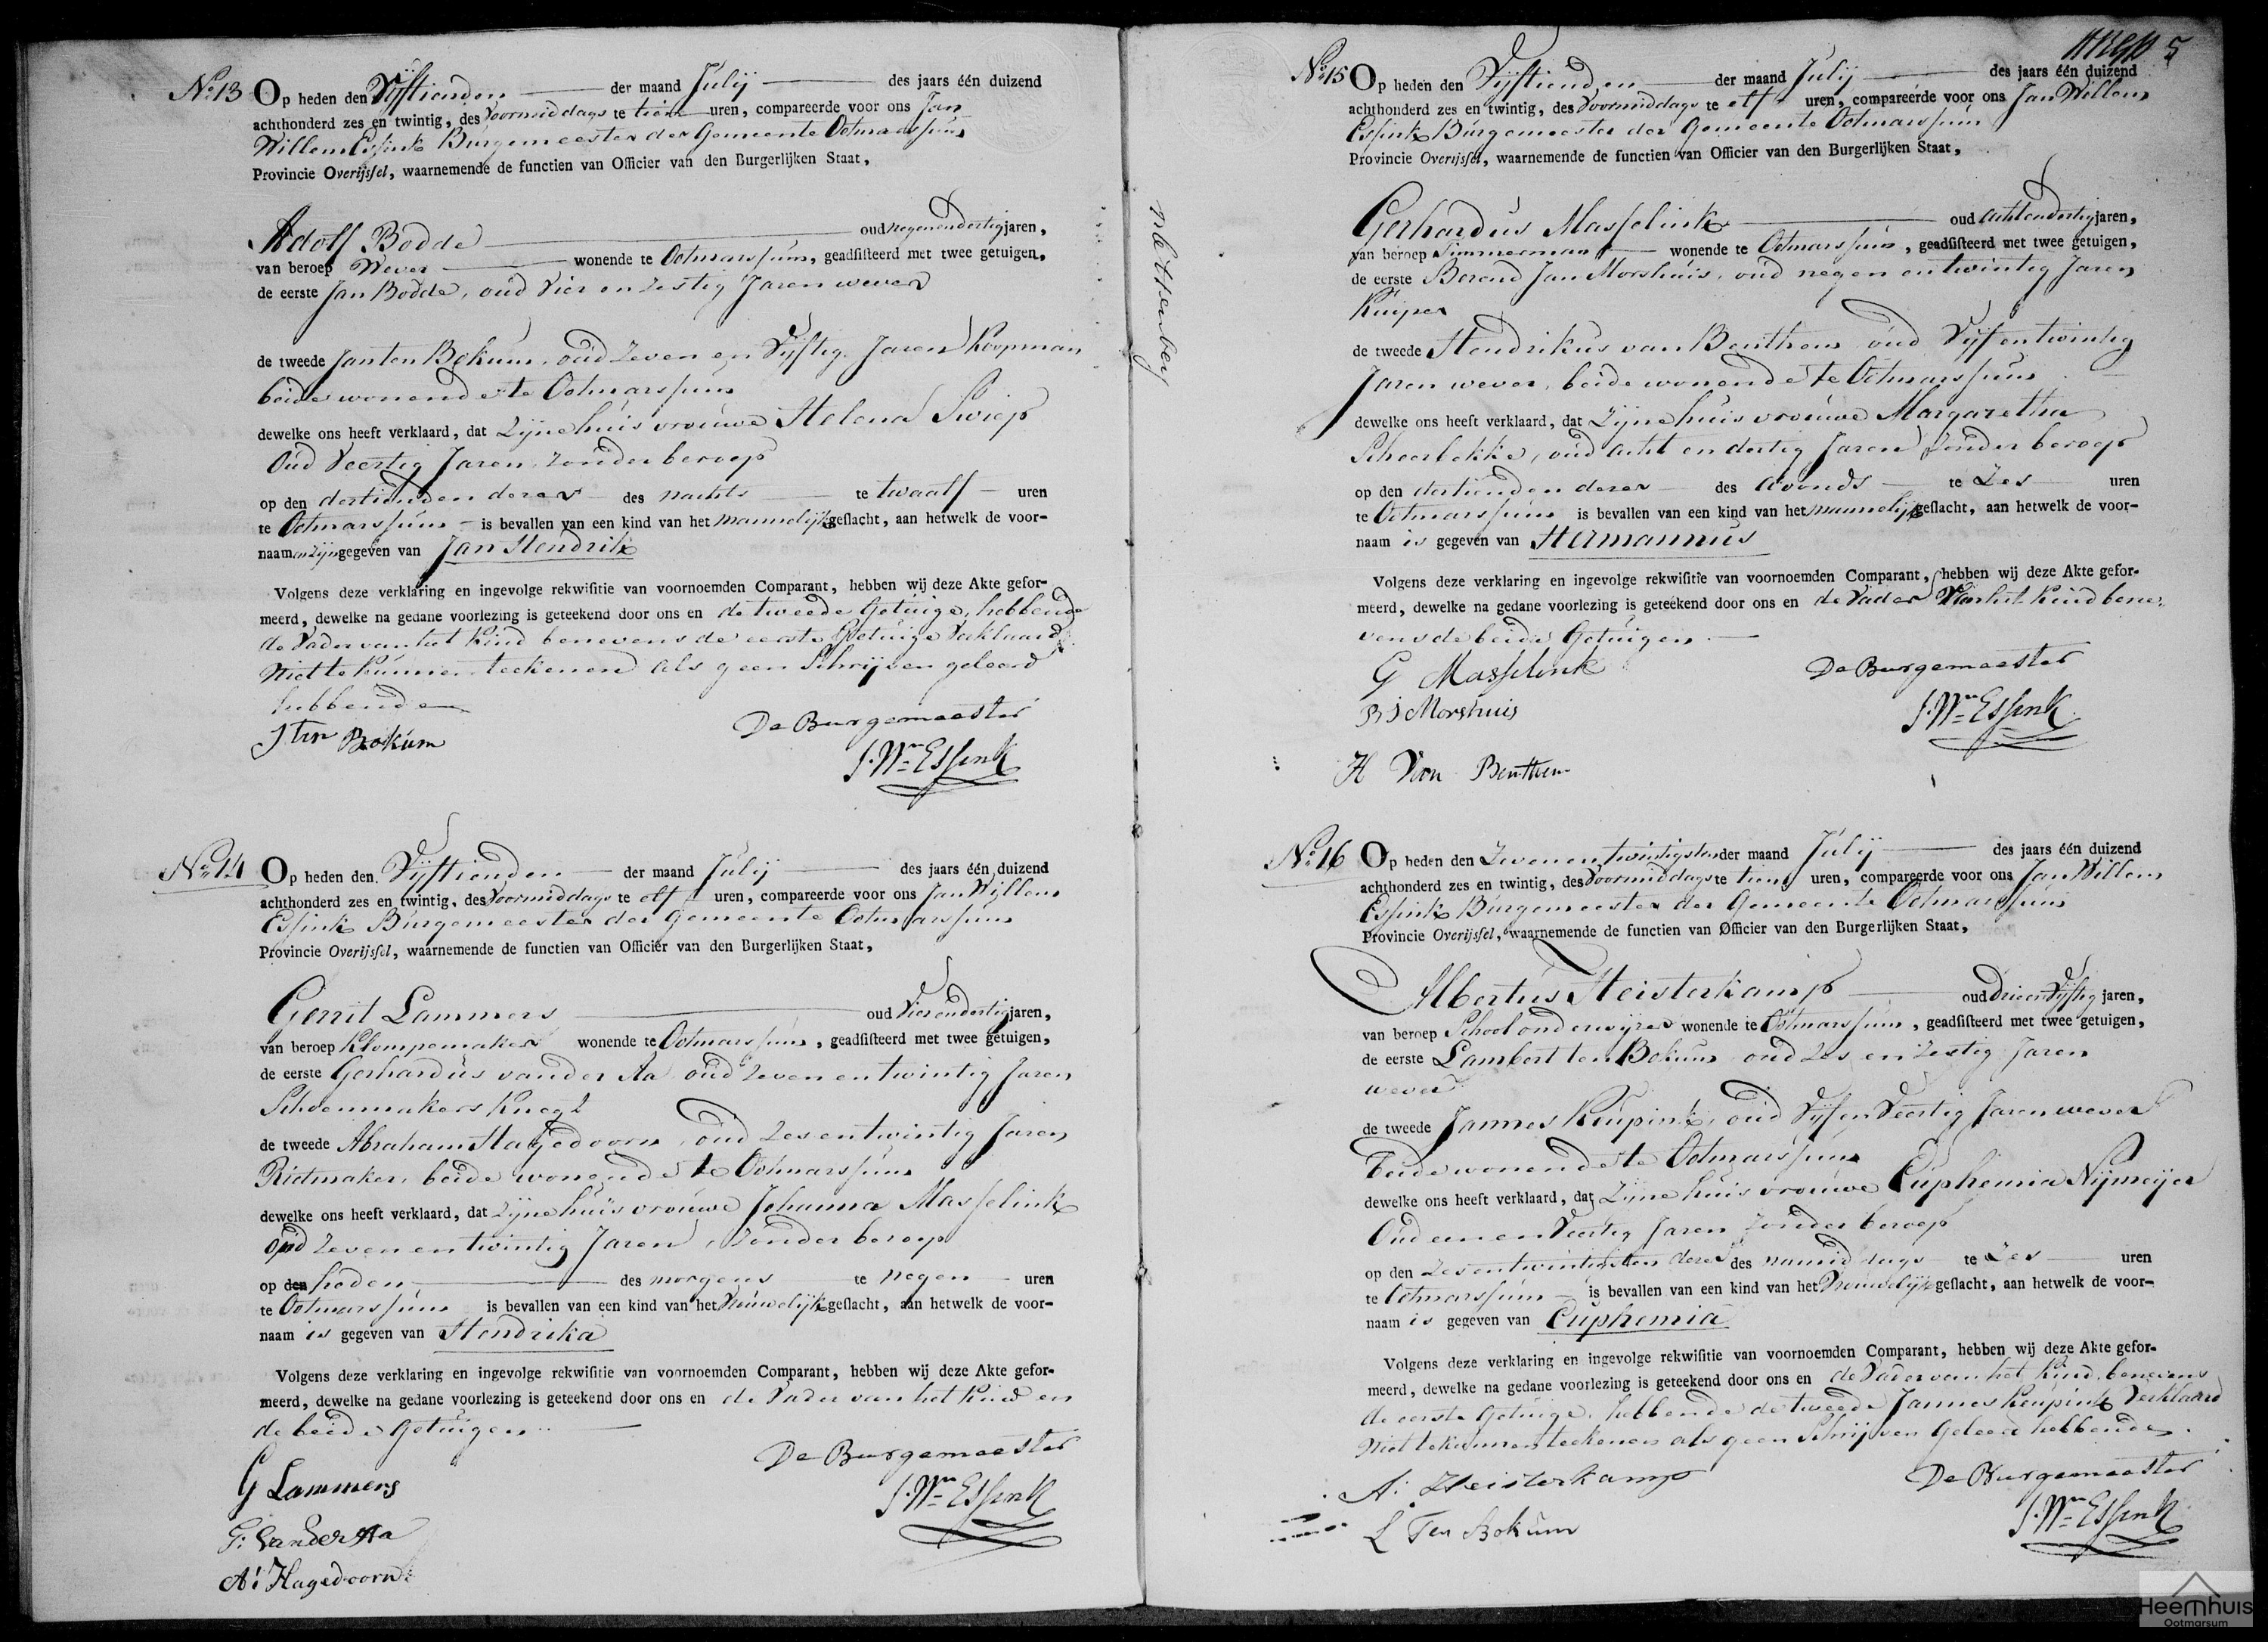 No. 13 Op heden den Vijftienden der maand Julij des jaars één duizend
achthonderd zes en twintig, des Voormiddags te tien uren, compareerde voor ons Jan
Willem Essink Burgemeester der Gemeente Ootmarssum
Provincie Overijssel, waarnemende de functien van Officier van den Burgerlijken Staat,
Adolf Bodde oud negenendertig jaren,
van beroep Wever wonende te Ootmarssum, geadsisteerd met twee getuigen,
de eerste Jan Bodde, oud Vier en Zestig Jaren wever
de tweede Jan ten Bokum, oud Zeven en Vyftig Jaren Koopman
beide wonende te Ootmarssum
dewelke ons heeft verklaard, dat Zijne huisvrouwe Helena Swiep
Oud Veertig Jaren Zonder beroep
op den dertienden dezer des nachts te twaalf uren
te Ootmarssum is bevallen van een kind van het mannelijk geslacht, aan hetwelk de voor-
naamen zijn gegeven van Jan Hendrik
Volgens deze verklaring en ingevolge rekwisitie van voornoemden Comparant, hebben wij deze Akte gefor-
meerd, dewelke na gedane voorlezing is geteekend door ons en de tweede Getuige, hebbende
de Vader van het Kind benevens de eerste Getuige Verklaard
Niet te Kunnen teekenen als geen Schrijven geleerd
hebbende
J ten Bokum De Burgemeester
J. Wm Essink
No. 14 Op heden den Vijftienden der maand Julij des jaars één duizend
achthonderd zes en twintig, des Voormiddags te elf uren, compareerde voor ons Jan Willem
Essink Burgemeester der Gemeente Ootmarssum
Provincie Overijssel, waarnemende de functien van Officier van den Burgerlijken Staat,
Gerrit Lammers oud Vierendertig jaren,
van beroep Klompemaker wonende te Ootmarssum, geadsisteerd met twee getuigen,
de eerste Gerhardus van der Aa oud Zeven en twintig Jaren
Schoenmakers Knegt
de tweede Abraham Hagedoorn, oud Zes en twintig Jaren
Rietmaker, beide wonende te Ootmarssum
dewelke ons heeft verklaard, dat Zijne huisvrouwe Johanna Masselink
oud Zeven en twintig Jaren, Zonder beroep
op den heden des morgens te negen uren
te Ootmarssum is bevallen van een kind van het Vrouwelijk geslacht, aan hetwelk de voor-
naam is gegeven van Hendrika
Volgens deze verklaring en ingevolge rekwisitie van voornoemden Comparant, hebben wij deze Akte gefor-
meerd, dewelke na gedane voorlezing is geteekend door ons en de Vader van het Kind en
de beide Getuigen
G Lammers De Burgemeester
G: Van der Aa J. Wm Essink
A: Hagedoorn
5
No. 15 Op heden den Vijftienden der maand Julij des jaars één duizend
achthonderd zes en twintig, des Voormiddags te elf uren, compareerde voor ons Jan Willem
Essink Burgemeester der Gemeente Ootmarssum
Provincie Overijssel, waarnemende de functien van Officier van den Burgerlijken Staat,
Gerhardus Masselink oud achtendertig jaren,
van beroep Timmerman wonende te Ootmarssum, geadsisteerd met twee getuigen,
de eerste Berend Jan Morshuis, oud negen en twintig Jaren
Kuiper
de tweede Hendrikus van Benthem oud Vijf en twintig
Jaren wever, beide wonende te Ootmarssum
dewelke ons heeft verklaard, dat Zijne huisvrouwe Margaretha
Scheerbekke, oud acht en dertig Jaren Zonder beroep
op den dertienden dezer des avonds te Zes uren
te Ootmarssum is bevallen van een kind van het mannelijk geslacht, aan hetwelk de voor-
naam is gegeven van Hermannus
Volgens deze verklaring en ingevolge rekwisitie van voornoemden Comparant, hebben wij deze Akte gefor-
meerd, dewelke na gedane voorlezing is geteekend door ons en de Vader Van het Kind bene-
vens de beide Getuigen
G Masselink De Burgemeester
B J Morshuis J. Wm Essink
H Van Benthem
No. 16 Op heden den Zevenentwintigsten der maand Julij des jaars één duizend
achthonderd zes en twintig, des Voormiddags te tien uren, compareerde voor ons Jan Willem
Essink Burgemeester der Gemeente Ootmarssum
Provincie Overijssel, waarnemende de functien van Officier van den Burgerlijken Staat,
Albertus Heisterkamp oud drieenVyftig jaren,
van beroep Schoolonderwijzer wonende te Ootmarssum, geadsisteerd met twee getuigen,
de eerste Lambert ten Bokum oud Zes en Zestig Jaren
wever
de tweede Jannes Keupink, oud Vyf en Veertig Jaren wever
beide wonende te Ootmarssum
dewelke ons heeft verklaard, dat Zijne huisvrouwe Euphemia Nijmeijer
Oud een en Veertig Jaren Zonder beroep
op den Zesentwintigsten dezer des namiddags te Zes uren
te Ootmarssum is bevallen van een kind van het Vrouwelijk geslacht, aan hetwelk de voor-
naam is gegeven van Euphemia
Volgens deze verklaring en ingevolge rekwisitie van voornoemden Comparant, hebben wij deze Akte gefor-
meerd, dewelke na gedane voorlezing is geteekend door ons en de Vader van het Kind, benevens
de eerste Getuige, hebbende de tweede Jannes Keupink Verklaard
Niet te kunnen teekenen als geen Schrijven Geleerd hebbende
A: Heisterkamp De Burgemeester
L Ten Bokum J. Wm Essink
Heemhuis
Ootmarsum